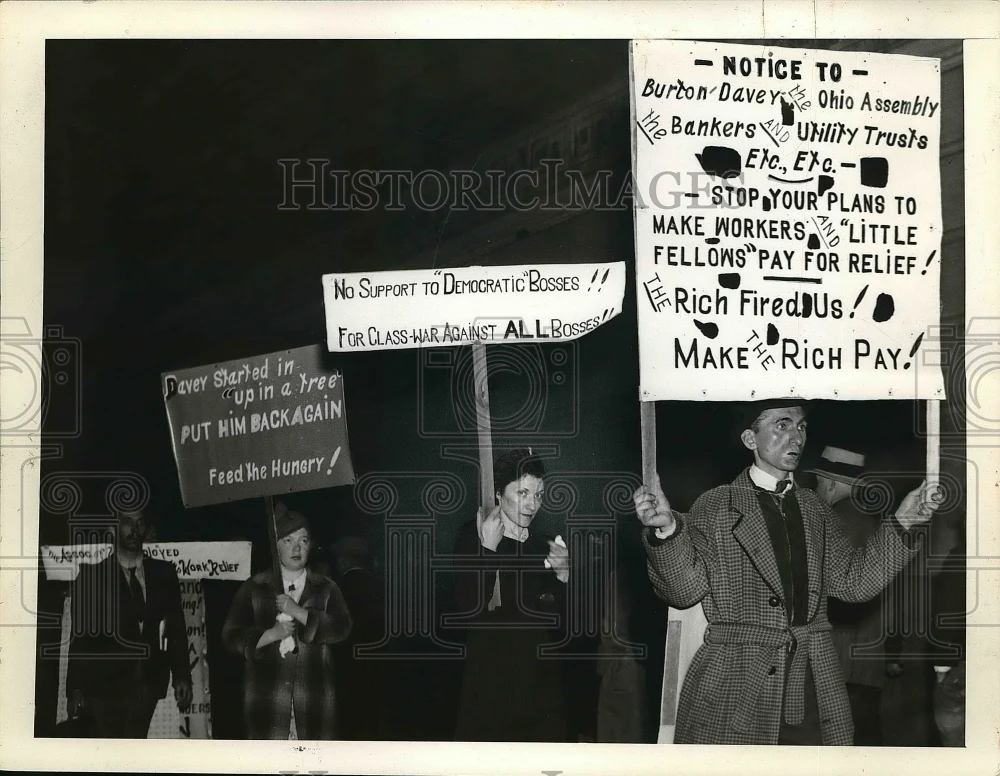 - NOTICE TO -
Burton - Davey - the Ohio Assembly
the Bankers AND Utility Trusts
Etc., Etc. -
- STOP YOUR PLANS TO
MAKE WORKERS AND "LITTLE
FELLOWS" PAY FOR RELIEF!
THE Rich Fired Us!
MAKE THE RICH PAY!
No Support to "Democratic" Bosses !!
For Class-war Against ALL Bosses!!
Davey Started in
"up in a tree"
PUT HIM BACK AGAIN
Feed the Hungry!
WORK RELIEF
HISTORIC IMAGES